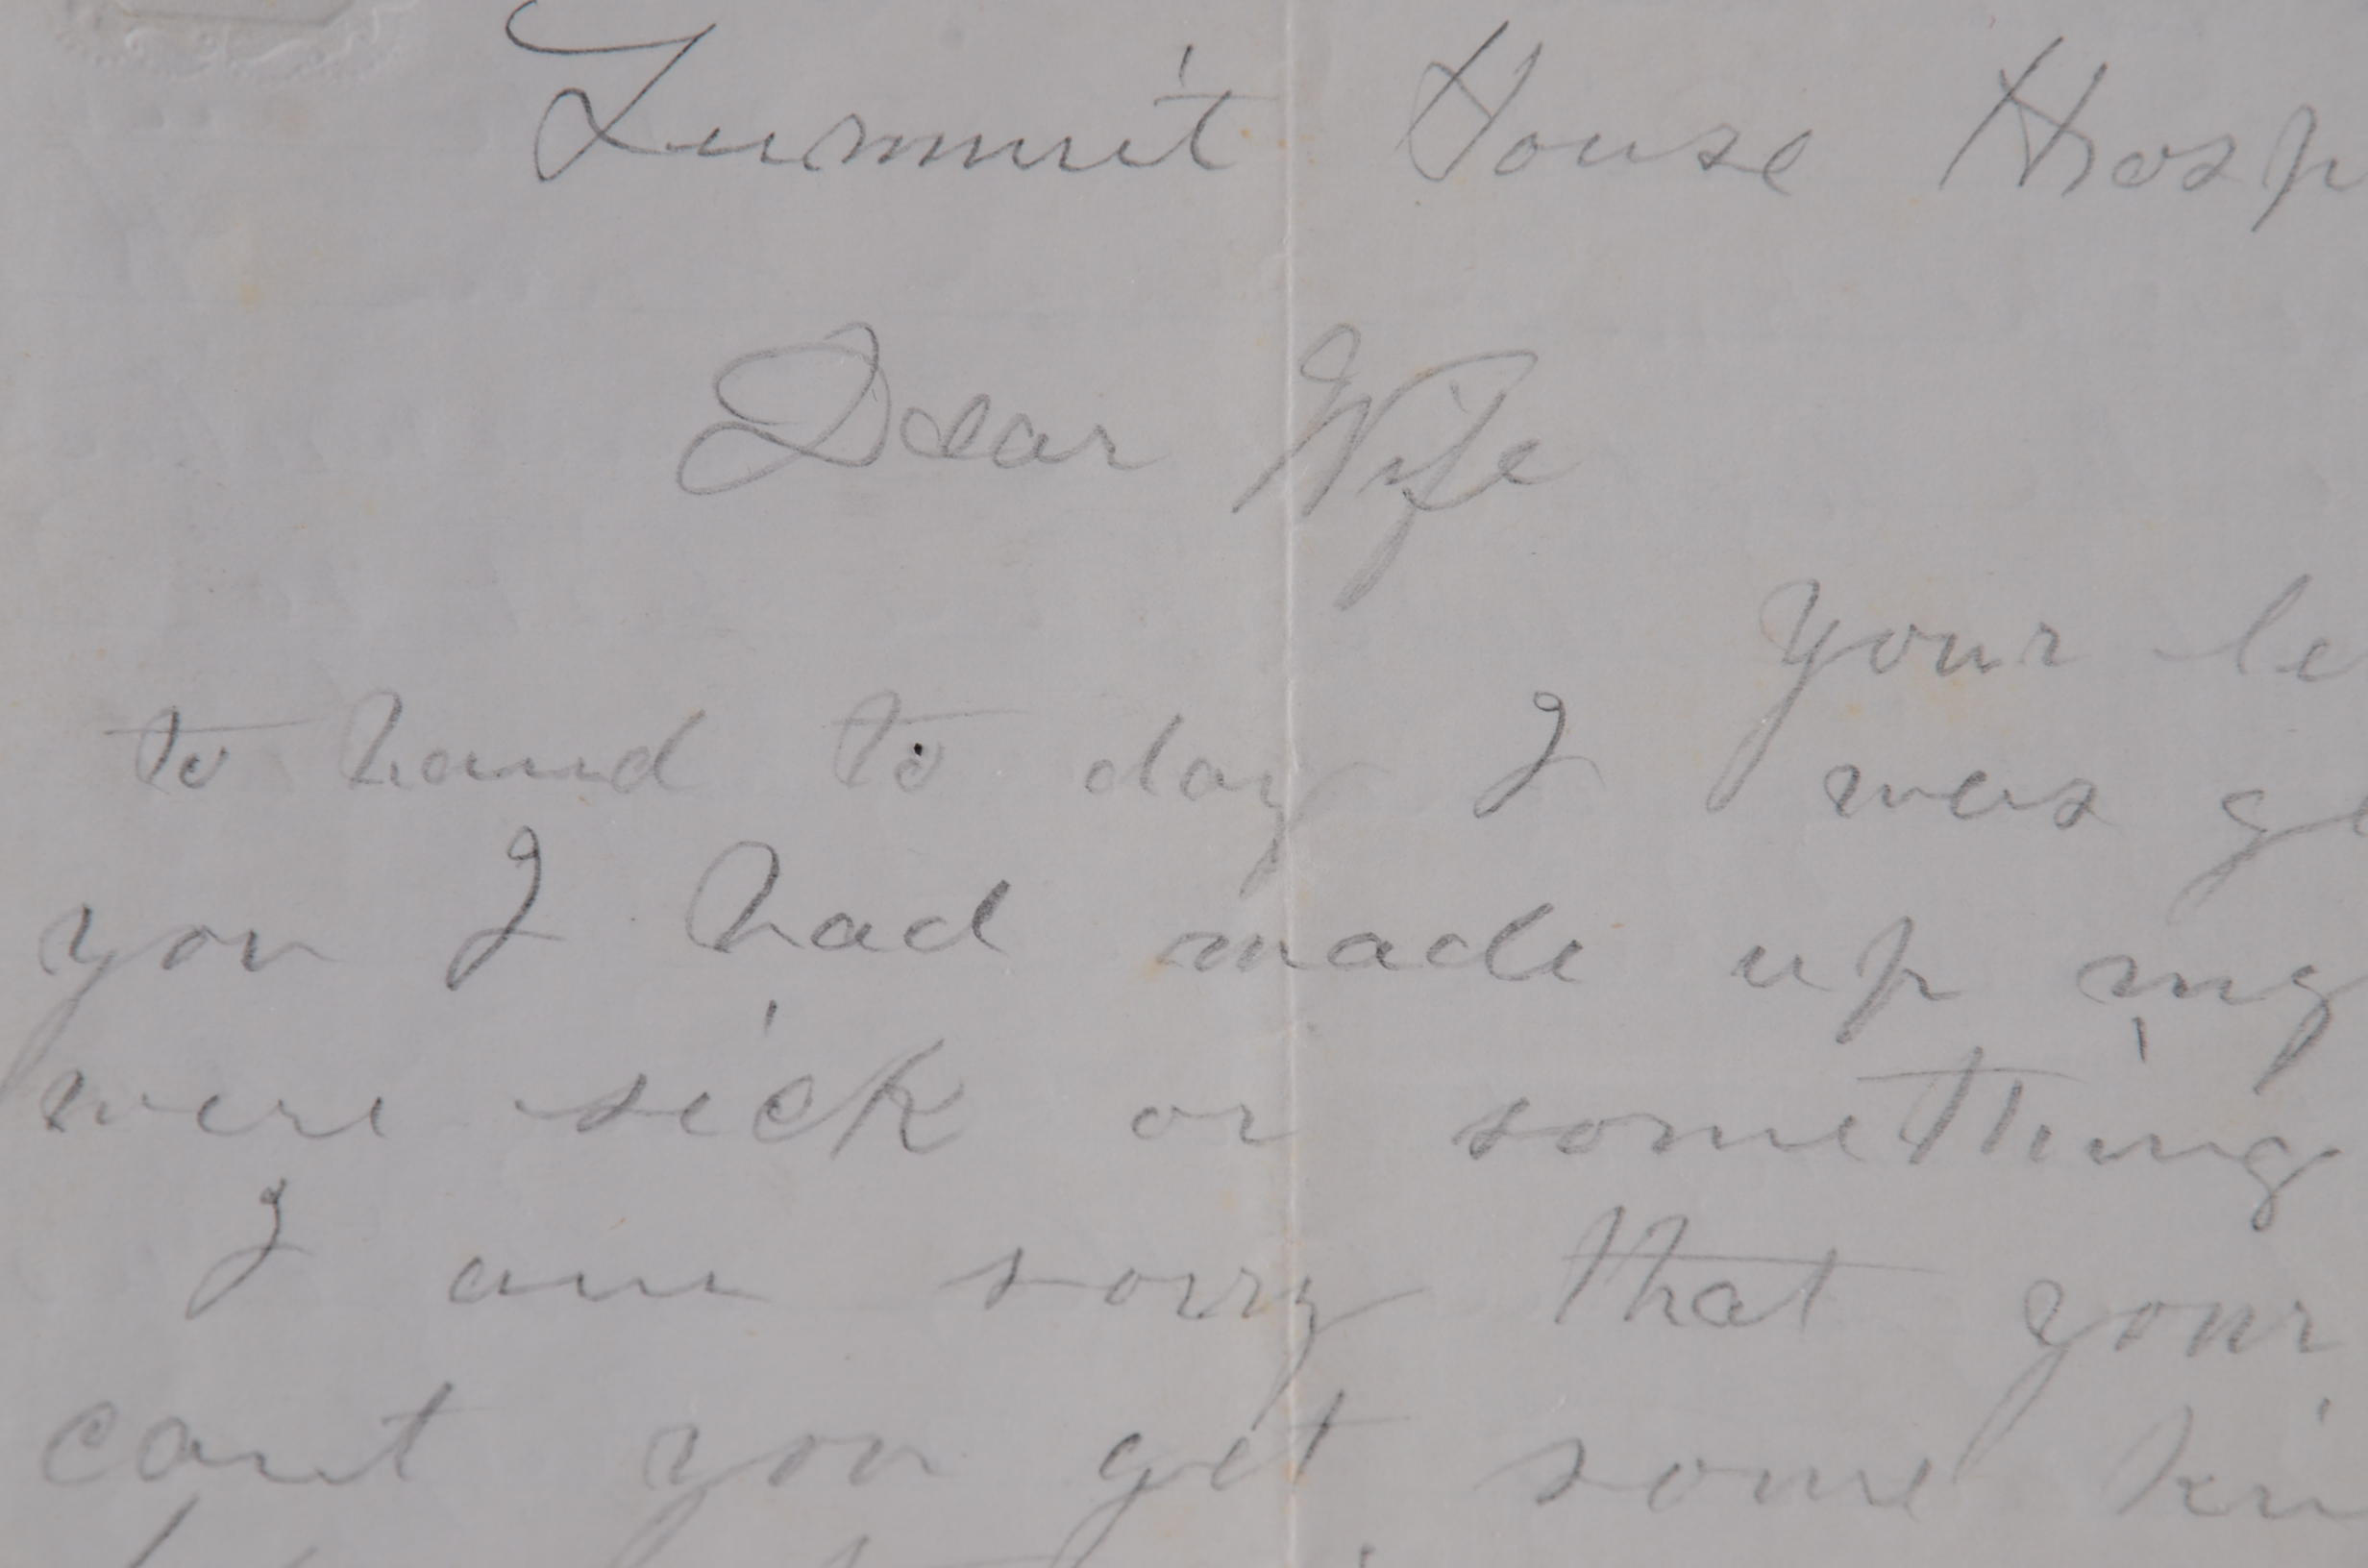 Summit House Hosp
Dear Wife
Your le
to hand to day I was gl
you I had made up my
were sick or something
I am sorry that your
cant you get some kin